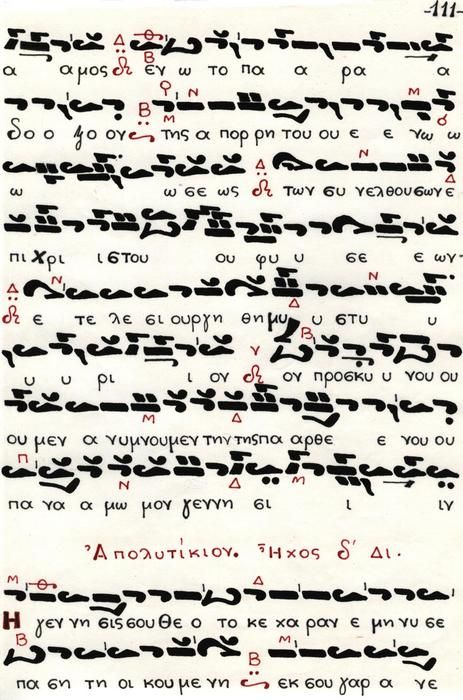 -111-
α α μος δι εν ω το πα α ρα α
δο ο ξο ον της α πορ ρη του ου ε ε νω ω
ω ω σε ως δι των συ νελθουσων ε
πι Χρι ι στου ου φυ υ σε ε ων
δι ε τε λε σι ουργη θη μυ υ στυ υ
υ υ ρι ι ον δι ον προσκυ υ νου ου
ου μεν α νυμνουμεν την της πα αρθε ε νου ου
πα να α μω μον γεννη σι ι ιν
Ἀπολυτίκιον. Ἦχος δ΄ Δι.
Η γεν νη σις σου Θε ο το κε χα ραν ε μη νυ σε
πα ση τη οι κου με νη εκ σου γαρ α νε